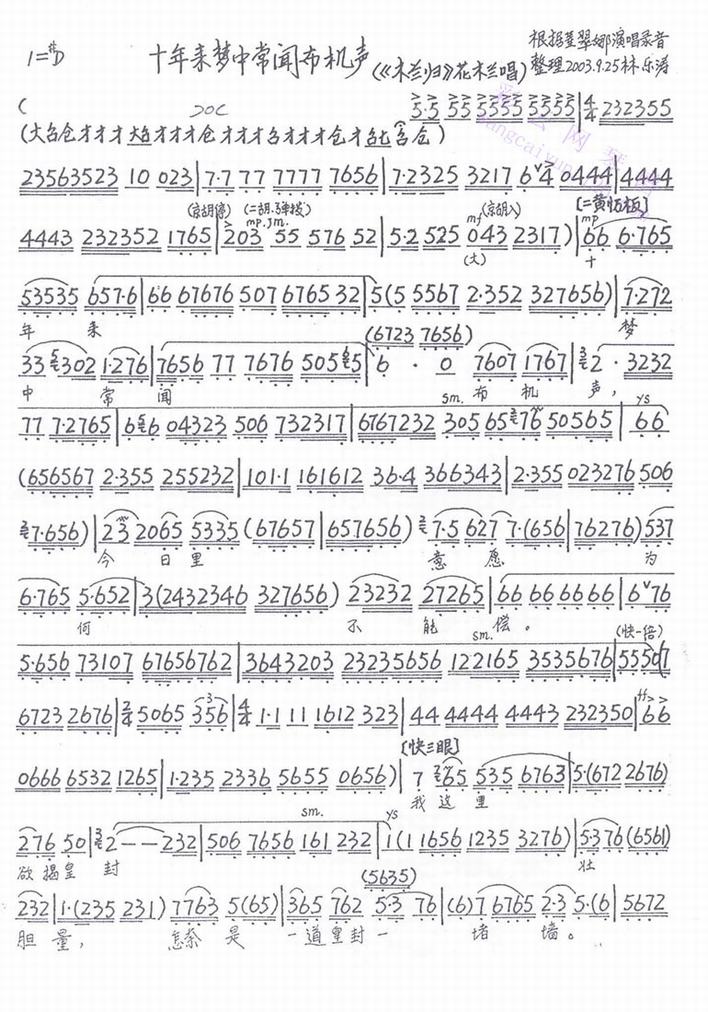 1=#D 十年来梦中常闻布机声 (《木兰归》花木兰唱)
根据 翠娜演唱录音
整理2003.9.25林乐涛
( サ 5·5 55 5555 5555 | 4/4 232355
(大台仓才才才 才才才仓才才才台才才才仓才 仓)
23563523 10 023 | 7·7 77 7777 7656 | 7·2325 3217 6ᵛ4 0444 | 4444
(京胡停) (二胡、弹拨) mp.Jm. (京胡入) mf [二黄 板] mp
4443 232352 1765 | 203 55 576 52 | 5·2 525 043 2317) | 66 6·765
(大) 十
53535 657·6 | 66 67676 507 6765 32 | 5(5 5567 2·352 327656) | 7·272
年 来 梦
(6723 7656)
33 302 1·276 | 7656 77 7676 505 5 | 6 · 0 7607 1767 | 2 · 3232
中 常 闻 sm. 布 机 声, ys
77 7·2765 | 6 6 04323 506 732317 | 6767232 305 65 76 50565 | 66
(656567 2·355 255232 | 101·1 161612 36·4 366343 | 2·355 023276 506
7·656) | 23 2065 5335 (67657 | 657656) 7·5 627 7·(656 | 76276) 537
今 日里 意 愿 为
6·765 5·652 | 3(2432346 327656) 23232 27265 | 66 66 66 66 | 6ᵛ76
何 不 能 偿。 sm. (快一倍)
5·656 73107 67656762 | 3643203 23235656 122165 3535676 | 5550(7
6723 2676 | 2/4 5065 356 | 4/4 1·1 11 1612 323 | 44 4444 4443 232350 | 66
ff
[快三眼]
0666 6532 1265 | 1·235 2336 5655 0656) | 7 65 535 6763 | 5·(672 2676)
我 这 里
sm. ys
276 50 | 2 - - 232 | 506 7656 161 232 | 1(1 11656 1235 3276) | 5·376 (6561)
欲揭皇 封 壮
(5635)
232 | 1·(235 231) 7763 5(65) | 365 762 5·3 76 | (6)7 6765 2·3 5·(6 | 5672
胆 量, 怎奈 是 一道皇封一 堵 墙。